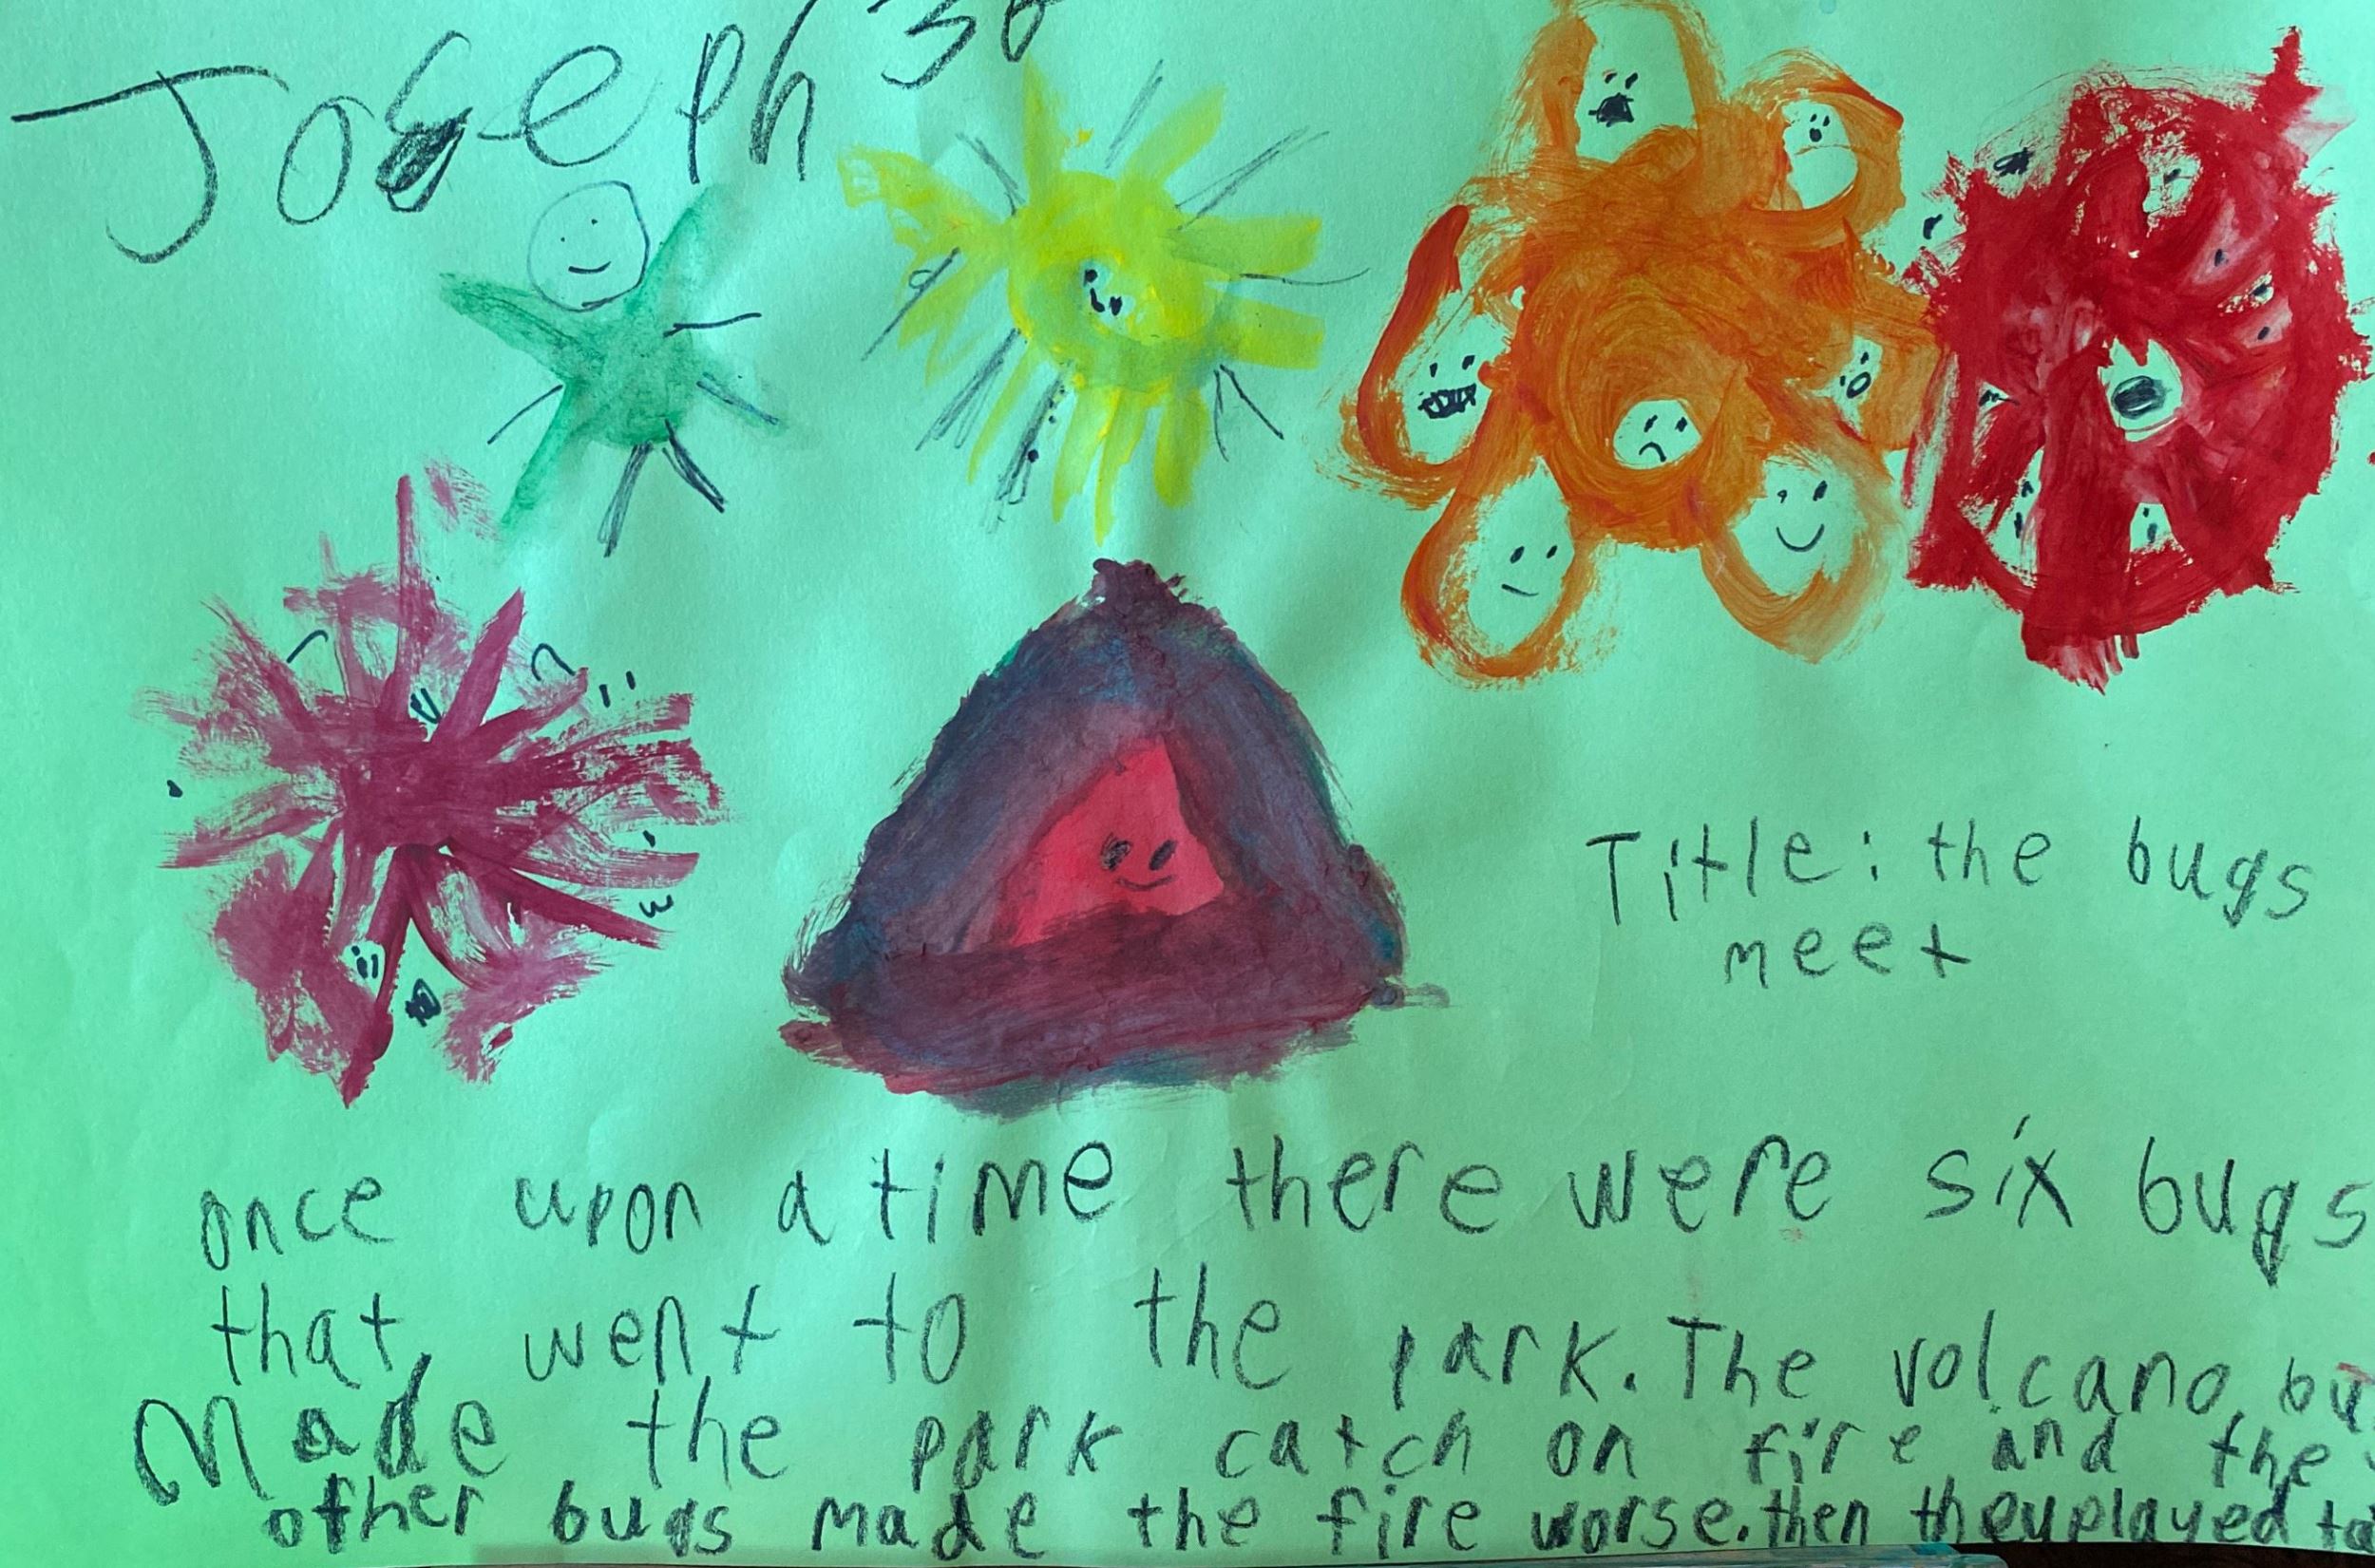 Joseph
Title: the bugs
meet
once upon a time there were six bugs
that went to the park. The volcano
Made the park catch on fire and the
other bugs made the fire worse. then they played